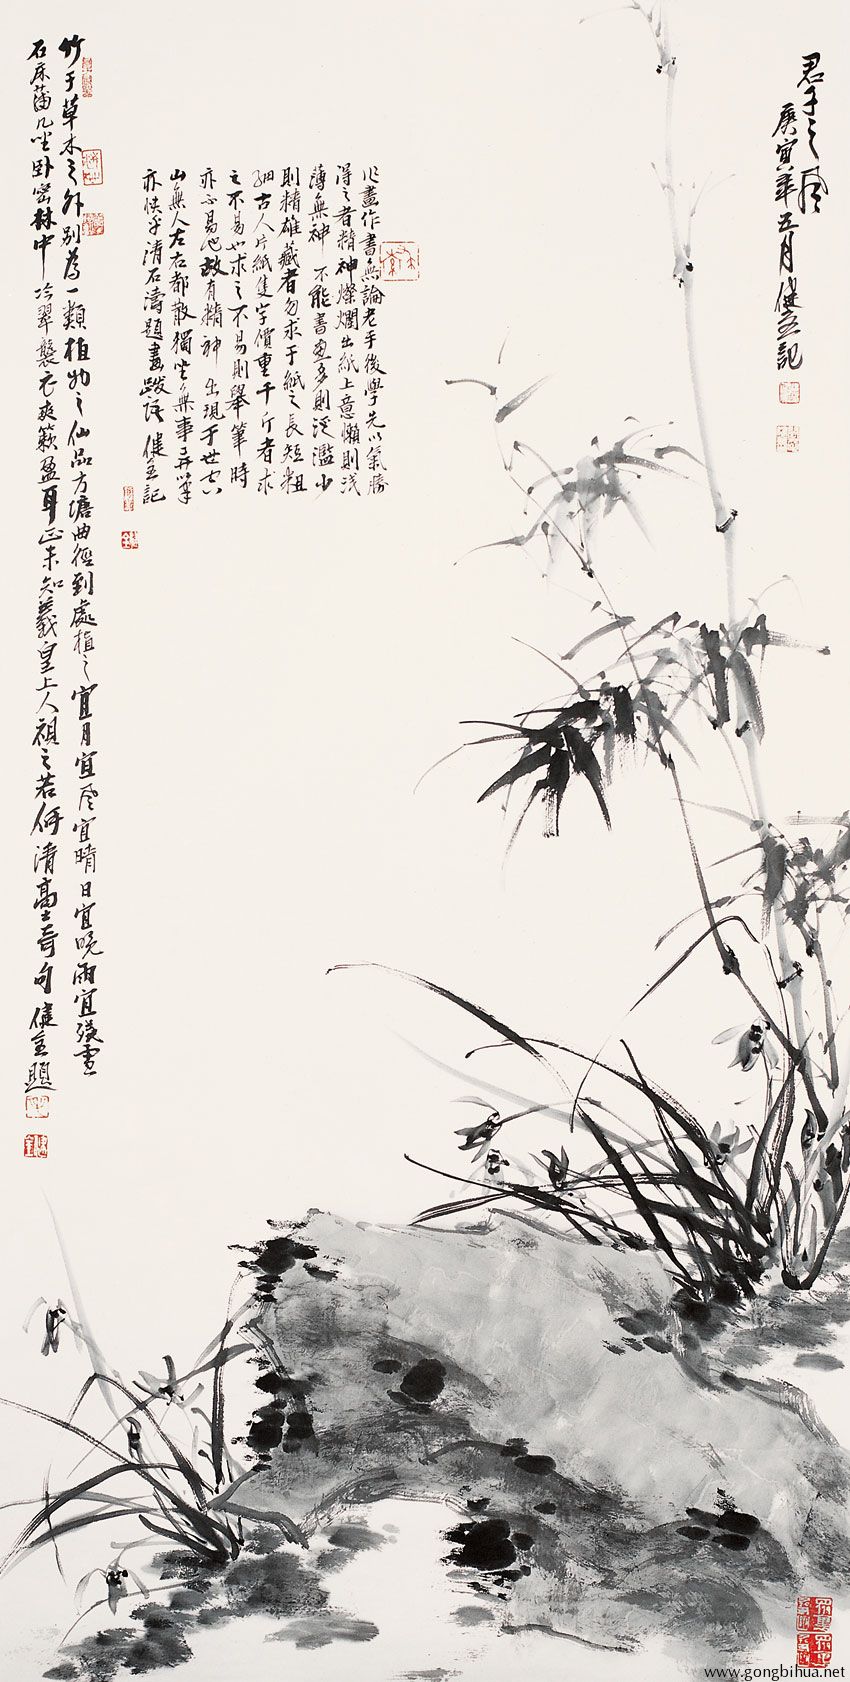 君子之风
庚寅年五月健㊎記
作畫作書無論老手後學先以氣勝
得之者精神燦爛出紙上意懶則浅
薄無神不能書畫多則泛濫少
則精雄藏者勿求于紙之長短粗
細古人片紙隻字價重千斤者求
之不易也求之不易則舉筆時
亦不易也故有精神出現于世古
山無人左右都散獨坐無事弄筆
亦快乎清石濤題畫跋語健記
竹于草木之外別為一類植物之仙品方塘曲徑到處植之宜月宜风宜晴日宜晚雨宜殘雪
石床蒲几坐卧密林中冷翠襲衣爽籁盈耳正未知羲皇上人視之若何清高士奇句健題
www.gongbihua.net